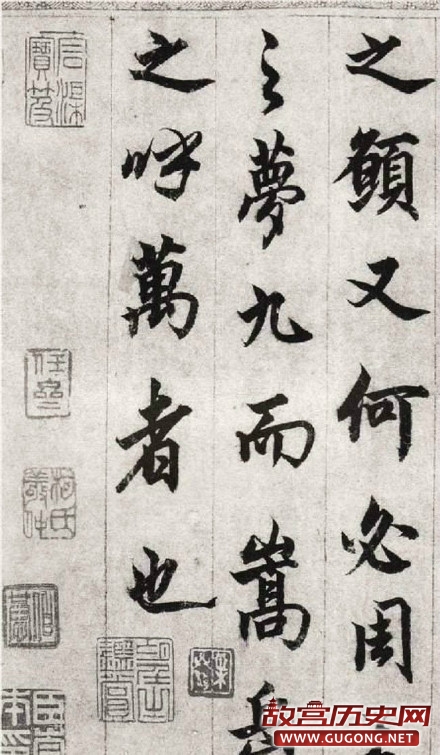 之願又何必周
之夢九而嵩
之呼萬者也
柯氏敬仲
故宫历史网
WWW.GUGONG.NET